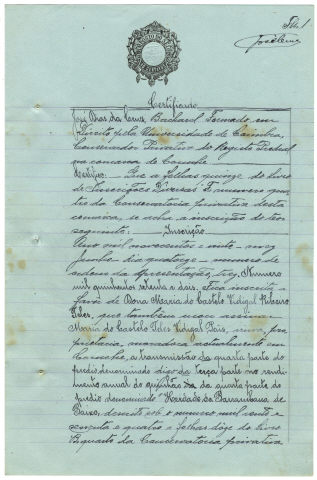 Fls. 1
Certificado
José Dias da Cruz, Bacharel Formado em
Direito pela Universidade de Coimbra,
Conservador Privativo do Registo Predial
na comarca de Coruche
Certifico: Que a folhas quinze do livro
de Inscrições Diversas F, numero qua-
tro da Conservatoria privativa desta
comarca, se acha a inscrição do teor
seguinte: Inscrição
Ano mil novecentos e vinte - mez
Junho dia quatorze - numero de
ordem da apresentação, trez, Numero
mil quinhentos setenta e dois. Fica inscrito a
favor de Dona Maria do Castelo Vidigal Ribeiro
Teles, que tambem usou assinar
Maria do Castelo Teles Vidigal Reis, pro-
prietaria, moradora actualmente em
Coruche, a transmissão da quarta parte do
predio denominado digo da Terça parte no rendi-
mento annual da quarta parte do
predio denominado "Herdade da
de Baixo, descrito sob o numero mil cento e
e quatro a folhas doze do livro
B quarto da Conservatoria privativa